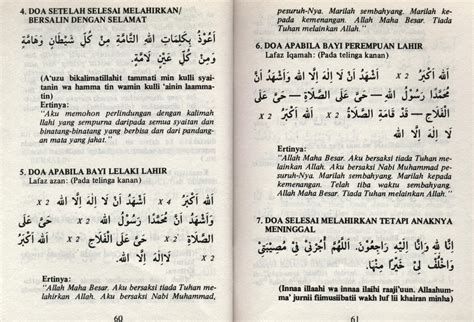 4. DOA SETELAH SELESAI MELAHIRKAN/
BERSALIN DENGAN SELAMAT
أَعُوْذُ بِكَلِمَاتِ اللهِ التَّامَّةِ مِنْ كُلِّ شَيْطَانٍ وَهَامَّةٍ
وَمِنْ كُلِّ عَيْنٍ لَامَّةٍ.
(A'uzu bikalimatillahit tammati min kulli syai-
tanin wa hamma tin wamin kulli 'ainin laamma-
tin)
Ertinya:
"Aku memohon perlindungan dengan kalimah
ilahi yang sempurna daripada semua syaitan dan
binatang-binatang yang berbisa dan dari pandang-
an mata yang jahat."
5. DOA APABILA BAYI LELAKI LAHIR
Lafaz azan: (Pada telinga kanan)
اللهُ أَكْبَرُ x 4 وَأَشْهَدُ أَنْ لَا إِلَهَ إِلَّا اللهُ x 2
وَأَشْهَدُ أَنَّ مُحَمَّدًا رَسُوْلُ اللهِ x 2 حَيَّ عَلَى
الصَّلَاةِ x 2 حَيَّ عَلَى الْفَلَاحِ x 2 اللهُ أَكْبَرُ
x 2 لَا إِلَهَ إِلَّا اللهُ
Ertinya:
"Allah Maha Besar. Aku bersaksi tiada Tuhan me-
lainkan Allah. Aku bersaksi Nabi Muhammad,
60
pesuruh-Nya. Marilah sembahyang. Marilah ke-
pada kemenangan. Allah Maha Besar. Tiada
Tuhan melainkan Allah."
6. DOA APABILA BAYI PEREMPUAN LAHIR
Lafaz Iqamah: (Pada telinga kanan)
اللهُ أَكْبَرُ x 2 أَشْهَدُ أَنْ لَا إِلَهَ إِلَّا اللهُ أَشْهَدُ أَنَّ
مُحَمَّدًا رَسُوْلُ اللهِ – حَيَّ عَلَى الصَّلَاةِ – حَيَّ عَلَى
الْفَلَاحِ – قَدْ قَامَةِ الصَّلَاةُ x 2 اللهُ أَكْبَرُ x 2
لَا إِلَهَ إِلَّا اللهُ
Ertinya:
"Allah Maha Besar. Aku bersaksi tiada Tuhan
melainkan Allah. Aku bersaksi Nabi Muhammad pe-
suruhNya. Marilah sembahyang. Marilah kepada
kemenangan. Telah tiba waktu sembahyang.
Allah Maha Besar. Tiada Tuhan melainkan Allah."
7. DOA SELESAI MELAHIRKAN TETAPI ANAKNYA
MENINGGAL
إِنَّا لِلّٰهِ وَإِنَّا إِلَيْهِ رَاجِعُوْنَ. اللّٰهُمَّ أْجُرْنِيْ فِيْ مُصِيْبَتِيْ
وَاخْلُفْ لِيْ خَيْرًا مِنْهَا.
(Innaa illaahi wa innaa ilaihi raaji'uun. Allaahum-
ma' jurnii fiimusiibatii wakh luf lii khairan minha)
61